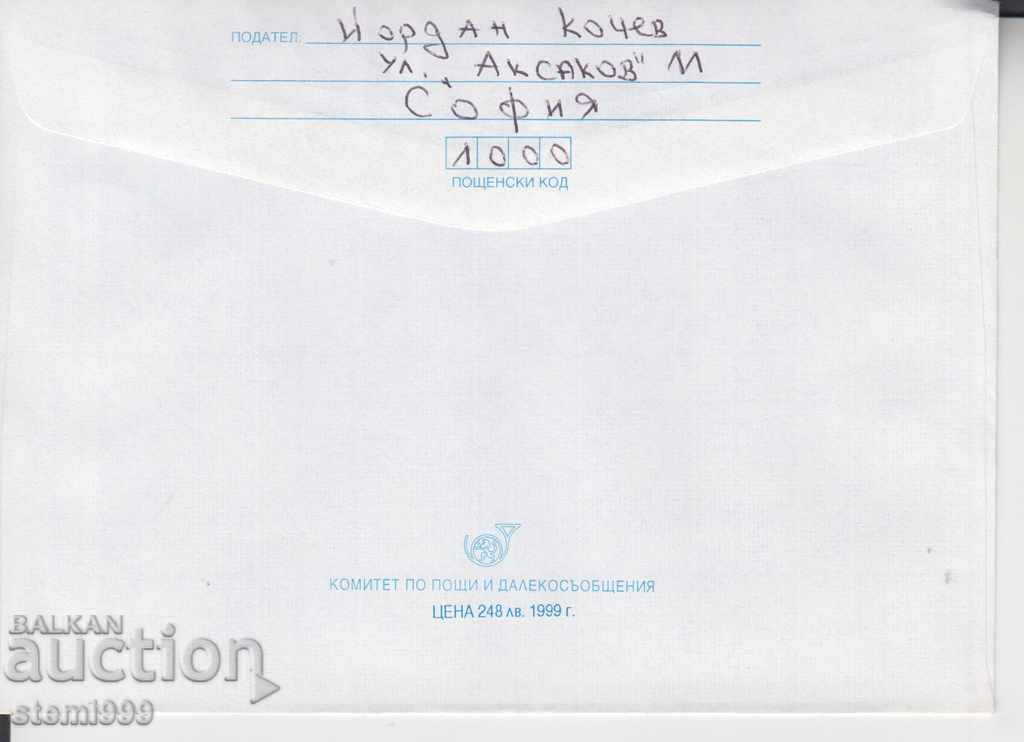 ПОДАТЕЛ: Йордан Кочев
ул. "Аксаков" 11
София
1000
ПОЩЕНСКИ КОД
КОМИТЕТ ПО ПОЩИ И ДАЛЕКОСЪОБЩЕНИЯ
ЦЕНА 248 лв. 1999 г.
BALKAN
auction
stemi999